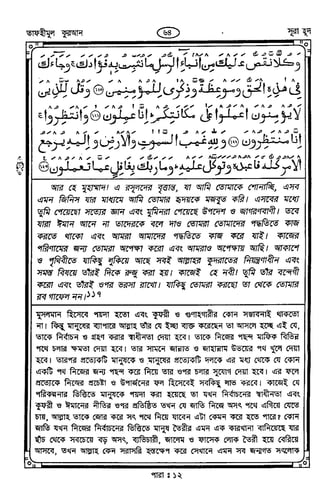 তাফহীমুল কুরআন
৬৪
সূরা হূদ
وَكُلًّا نَّقُصُّ عَلَيْكَ مِنْ أَنْبَاءِ الرُّسُلِ مَا نُثَبِّتُ بِهِ فُؤَادَكَ وَجَاءَكَ
فِي هٰذِهِ الْحَقُّ وَمَوْعِظَةٌ وَّذِكْرٰى لِلْمُؤْمِنِينَ ﴿١٢٠﴾ وَقُلْ لِّلَّذِينَ
لَا يُؤْمِنُونَ اعْمَلُوا عَلٰى مَكَانَتِكُمْ إِنَّا عٰمِلُونَ ﴿١٢١﴾ وَانْتَظِرُوا
إِنَّا مُنْتَظِرُونَ ﴿١٢٢﴾ وَلِلّٰهِ غَيْبُ السَّمٰوٰتِ وَالْأَرْضِ وَإِلَيْهِ يُرْجَعُ
الْأَمْرُ كُلُّهُ فَاعْبُدْهُ وَتَوَكَّلْ عَلَيْهِ وَمَا رَبُّكَ بِغَافِلٍ عَمَّا تَعْمَلُونَ ﴿١٢٣﴾
আর হে মুহাম্মাদ! এ রসূলদের বৃত্তান্ত, যা আমি তোমাকে শোনাচ্ছি, এসব
এমন জিনিস যার মাধ্যমে আমি তোমার হৃদয়কে মজবুত করি। এসবের মধ্যে
তুমি পেয়েছো সত্যের জ্ঞান এবং মুমিনরা পেয়েছে উপদেশ ও জাগরণবাণী। তবে
যারা ঈমান আনে না তাদেরকে বলে দাও তোমরা তোমাদের পদ্ধতিতে কাজ
করতে থাকো এবং আমরা আমাদের পদ্ধতিতে কাজ করে যাই। কাজের
পরিণামের জন্য তোমরা অপেক্ষা করো এবং আমরাও অপেক্ষায় আছি। আকাশে
ও পৃথিবীতে যাকিছু লুকিয়ে আছে সবই আল্লাহর কুদরাতের নিয়ন্ত্রণাধীন এবং
সমস্ত বিষয়ে তাঁরই দিকে রুজু করা হয়। কাজেই হে নবী! তুমি তাঁর বন্দেগী
করো এবং তাঁরই ওপর ভরসা রাখো। যাকিছু তোমরা করছো তা থেকে তোমার
রব গাফেল নন।১১৭
মুসলমান হিসেবে পয়দা হতো এবং কুফরী ও গুণাহগারীর কোন সম্ভাবনাই থাকতো
না। কিন্তু মানুষের ব্যাপারে আল্লাহ তাঁর যে ইচ্ছা ব্যক্ত করেছেন তা আসলে হচ্ছে এই যে,
তাকে নির্বাচন ও গ্রহণ করার স্বাধীনতা দেয়া হবে। তাকে নিজের পছন্দ মাফিক বিভিন্ন
পথে চলার ক্ষমতা দেয়া হবে। তার সামনে জান্নাত ও জাহান্নাম উভয়ের পথ খুলে দেয়া
হবে। তারপর প্রত্যেকটি মানুষকে ও মানুষের প্রত্যেকটি দলকে এর মধ্য থেকে যে কোন
একটি পথ নিজের জন্য পছন্দ করে নিয়ে তার ওপর চলার সুযোগ দেয়া হবে। এর ফলে
প্রত্যেকে নিজের প্রচেষ্টা ও উপার্জনের ফল হিসেবেই সবকিছু লাভ করবে। কাজেই যে
পরিকল্পনার ভিত্তিতে মানুষকে পয়দা করা হয়েছে তা যখন নির্বাচনের স্বাধীনতা এবং
কুফরী ও ঈমানের নীতির ওপর প্রতিষ্ঠিত তখন যে জাতি নিজে অসৎ পথে এগিয়ে যেতে
চায়, আল্লাহ তাকে জোর করে সৎ পথে নিয়ে যাবেন এটা কেমন করে হতে পারে। কোন
জাতি যখন নিজের নির্বাচনের ভিত্তিতে মানুষ তৈরীর এমন এক কারখানা বানিয়েছে যার
ছাঁচ থেকে সবচেয়ে বড় অসৎ, ব্যভিচারী, জালেম ও ফাসেক লোক তৈরী হয়ে বেরিয়ে
আসবে, তখন আল্লাহ কেন সরাসরি হস্তক্ষেপ করে সেখানে এমন সব জন্মগত সৎলোক
পারা : ১২